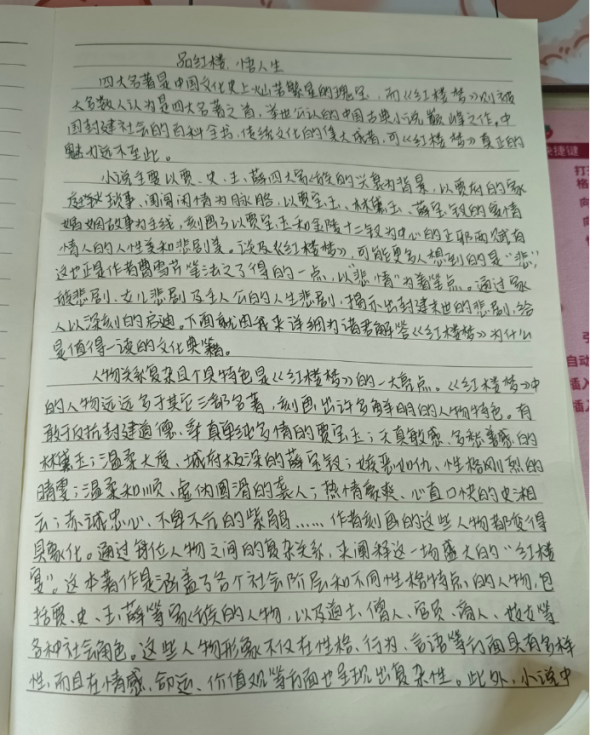 品红楼,悟人生
四大名著是中国文化史上灿若繁星的瑰宝,而《红楼梦》则被
大多数人认为是四大名著之首,举世公认的中国古典小说巅峰之作,中
国封建社会的百科全书,传统文化的集大成者,可《红楼梦》真正的
魅力远不至此。
小说主要以贾、史、王、薛四大家族的兴衰为背景,以贾府的家
庭琐事、闺阁闲情为脉络,以贾宝玉、林黛玉、薛宝钗的爱情
婚姻故事为主线,刻画了以贾宝玉和金陵十二钗为中心的正邪两赋有
情人的人性美和悲剧美。谈及《红楼梦》,可能更多人想到的是“悲”,
这也正是作者曹雪芹笔法之了得的一点,以“悲情”为着笔点。通过家
族悲剧、女儿悲剧及主人公的人生悲剧,揭示出封建末世的悲剧,给
人以深刻的启迪。下面就由我来详细为诸君解答《红楼梦》为什么
是值得一读的文化典籍。
人物关系复杂且个具特色是《红楼梦》的一大亮点。《红楼梦》中
的人物远远多于其它三部名著,刻画出许多鲜明的人物特色。有
敢于反抗封建道德、率真单纯多情的贾宝玉;天真敏感、多愁善感的
林黛玉;温柔大度、城府极深的薛宝钗;嫉恶如仇、性格刚烈的
晴雯;温柔和顺、虚伪圆滑的袭人;热情豪爽、心直口快的史湘
云;赤诚忠心、不卑不亢的紫鹃……作者刻画的这些人物都变得
具象化。通过每位人物之间的复杂关系,来阐释这一场盛大的“红楼
宴”。这本著作是涵盖了各个社会阶层和不同性格特点的人物,包
括贾、史、王、薛等家族的人物,以及道士、僧人、官员、商人、妓女等
各种社会角色。这些人物形象不仅在性格、行为、言语等方面具有多样
性,而且在情感、命运、价值观等方面也呈现出复杂性。此外,小说中
快捷键
打
格
向
向
引
自动
插入
插入